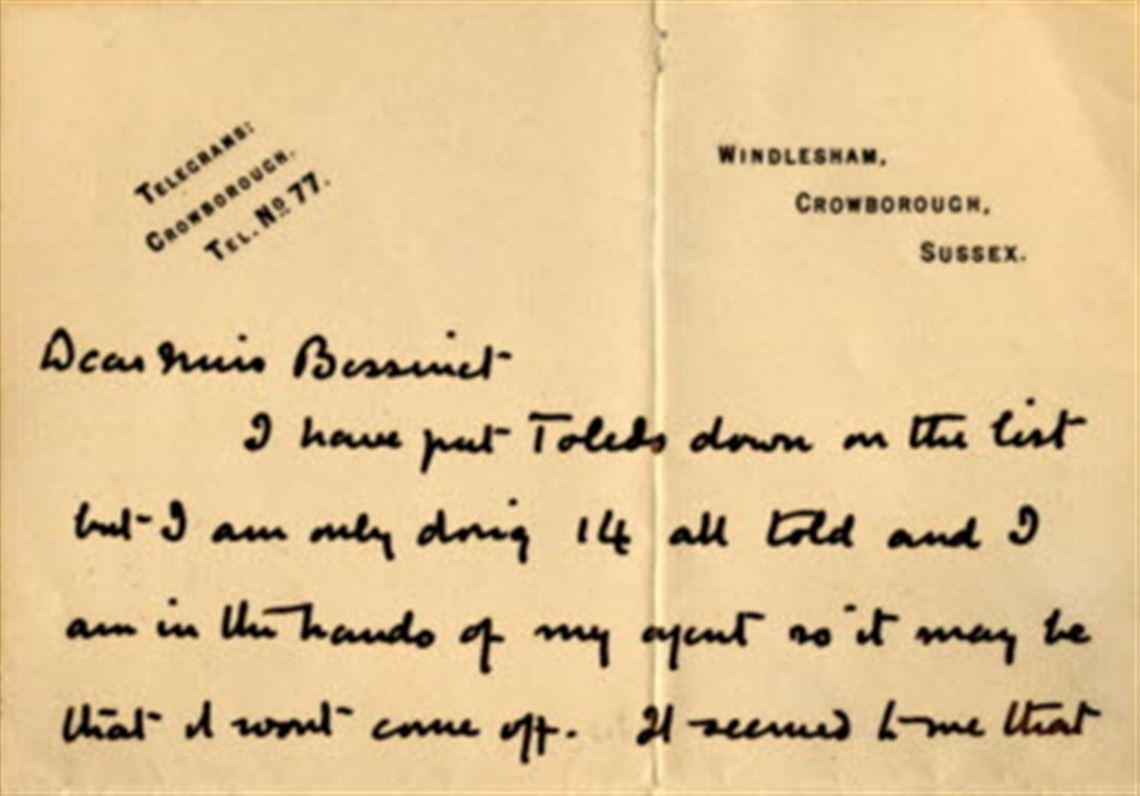 TELEGRAMS:
CROWBOROUGH.
TEL. No 77.
WINDLESHAM,
CROWBOROUGH,
SUSSEX.
Dear Miss Bessinet
I have put Toledo down on the list
but I am only doing 14 all told and I
am in the hands of my agent so it may be
that it wont come off. It seemed to me that